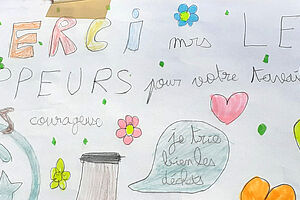 MERCI mrs LE
PPEURS pour votre travai
s courageux
je trie
bien les
déchets